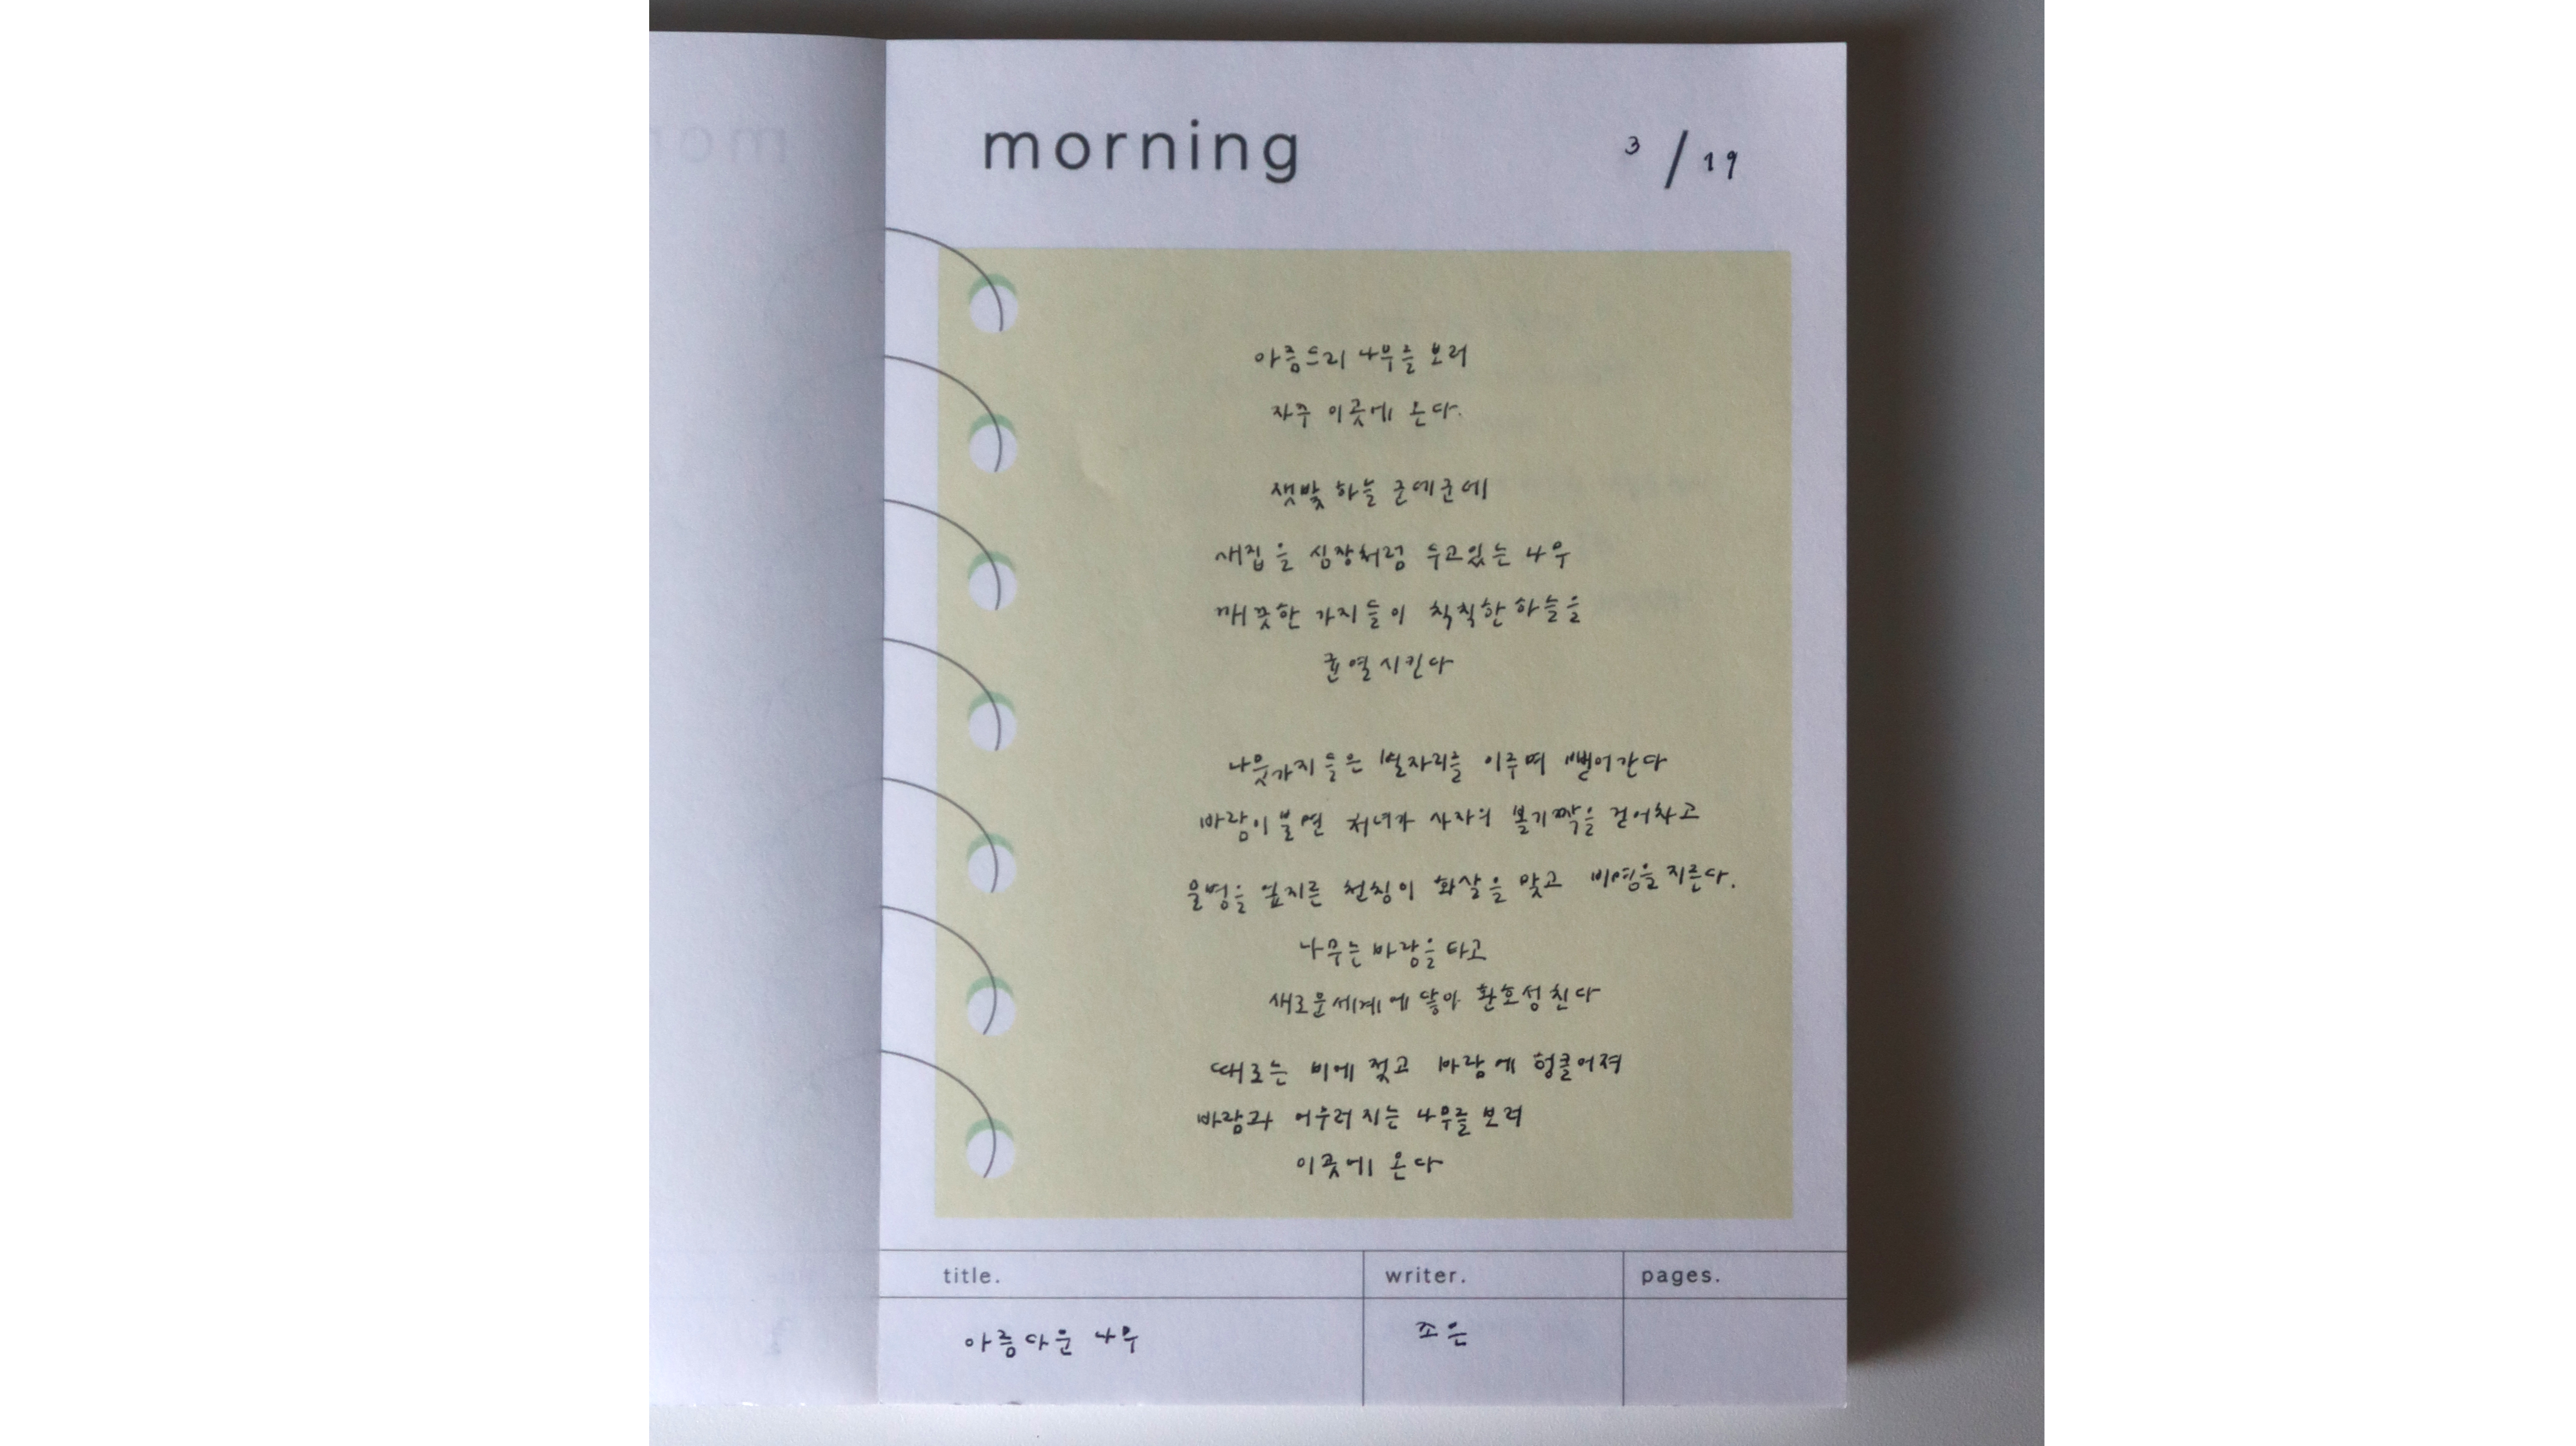 morning
3 / 19
아름드리 나무를 보러
자주 이곳에 온다.
잿빛 하늘 군데군데
새집을 심장처럼 두고있는 나무
깨끗한 가지들이 칙칙한 하늘을
균열시킨다
나뭇가지들은 별자리를 이루며 뻗어간다
바람이 불면 처녀가 사자의 볼기짝을 걷어차고
물병을 엎지른 천칭이 화살을 맞고 비명을 지른다.
나무는 바람을 타고
새로운 세계에 닿아 환호성친다
때로는 비에 젖고 바람에 헝클어져
바람과 어우러지는 나무를 보러
이곳에 온다
title.
writer.
pages.
아름다운 나무
조은